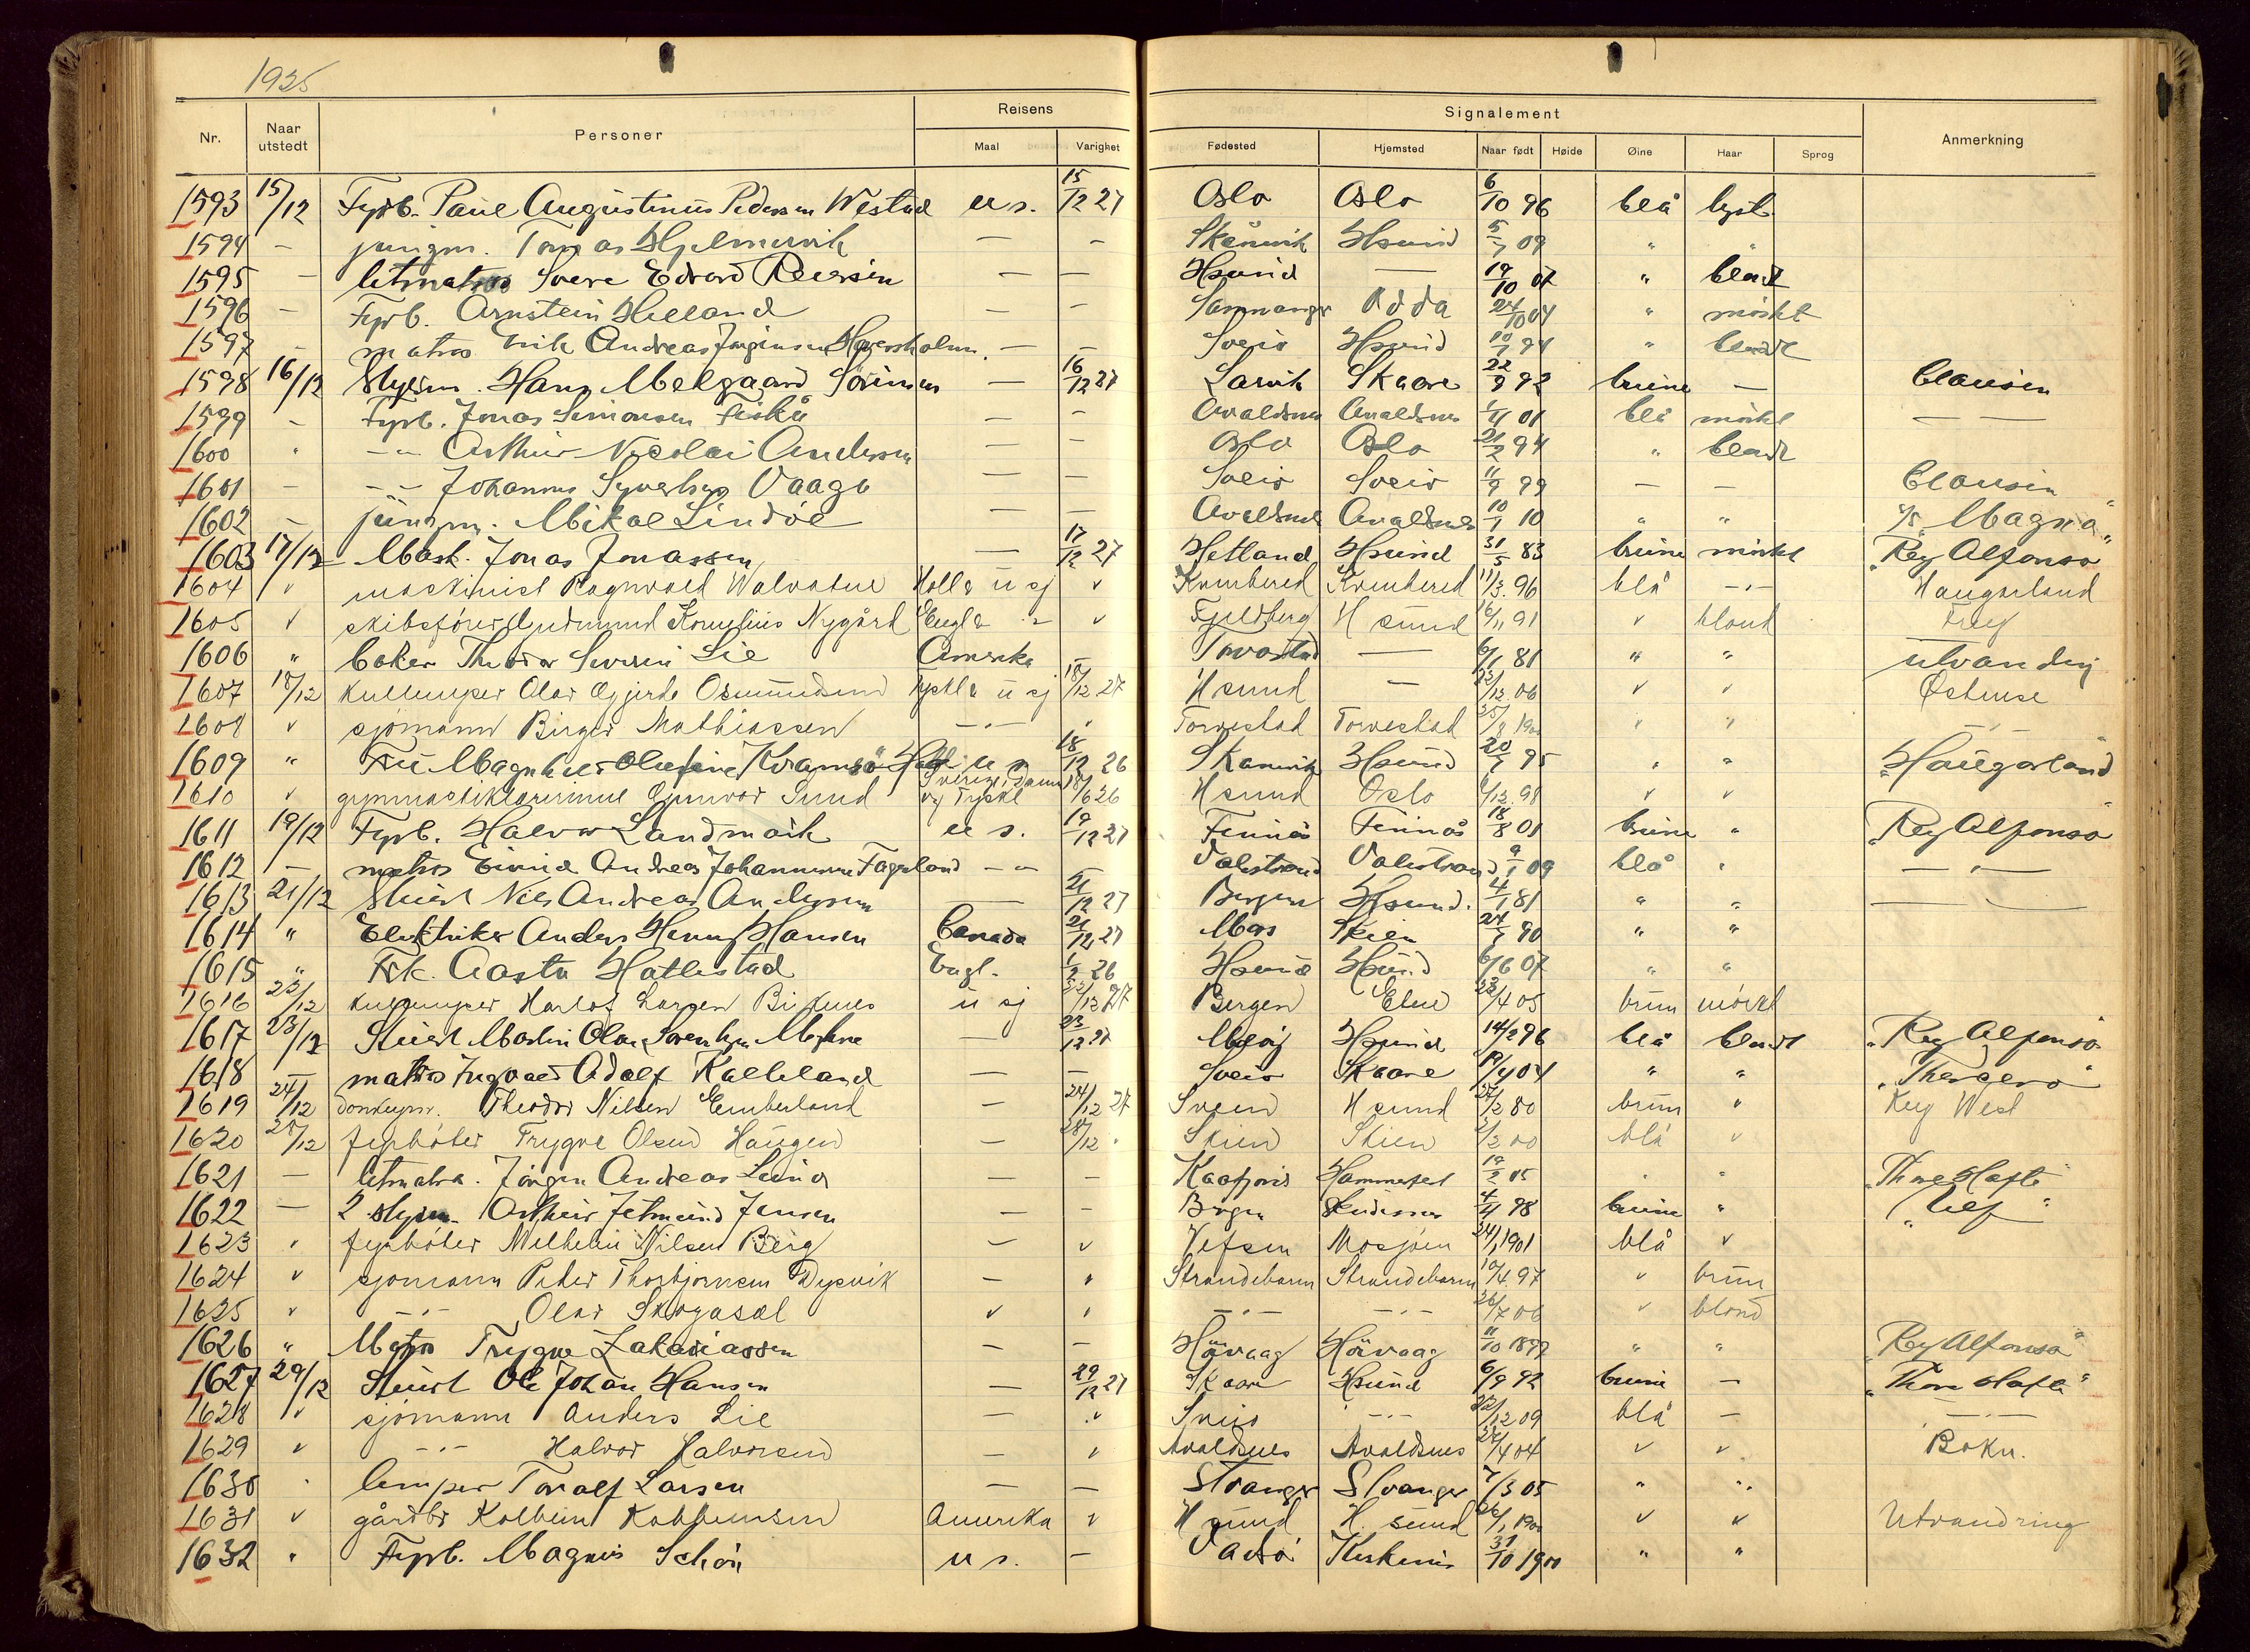 1925
Nr. Naar utstedt Personer Reisens Maal Varighet Fødested Hjemsted Naar født Høide Øine Haar Sprog Signalement Anmerkning
1593 15/12 Fyrb. Paul Augustinus Pedersen Westad u s. 15/12 27 Oslo Oslo 6/10 96 blå lyst
1594 — jungm. Tomas Hjelmervik — - Skånevik Hsund 5/7 09 " "
1595 — letmatros Sverre Edvard Reiersen — — Hsund — 19/10 07 " blondt
1596 - Fyrb. Arnstein Helland — - Samnanger Odda 24/10 04 " mörkt
1597 - matros Erik Andreas Jörginsen Hoversholm. — - Sveio Hsund 10/7 94 " blondt
1598 16/12 Styrm. Hans Melgaard Sörensen — 16/12 27 Larvik Skaare 22/9 92 brune — Clausen
1599 - Fyrb. Jonas Simonsen Fiskå — - Avaldsnes Avaldsnes 1/11 01 blå mörkt — —
1600 " —"— Arthur Nicolai Andersen — - Oslo Oslo 21/2 94 " blondt
1601 - -"- Johannes Syvertsen Vaage — - Sveio Sveio 11/9 99 — — Clausen
1602 — jungm. Mikal Lindöe — — Avaldsnes Avaldsnes 10/1 10 " " s/s "Magna"
1603 17/12 Mask. Jonas Jonassen — 17/12 27 Hetland Hsund 31/5 83 brune mörkt "Rey Alfonso"
1604 " maskinist Ragnvald Valvatne Holl & u sj " Kvinhered Kvinhered 11/3 96 blå -"- Haugarland
1605 " skibsförer Gudmund Kornelius Nygård Engl & " " Fjeldberg Hsund 16/11 91 " blond Frey
1606 " Coker Theodor Severin Lie Amerika — Torvastad — 6/1 81 " " utvandrig
1607 18/12 kullemper Olav Gjerde Osmundsen tyskl & u sj 18/12 27 Hsund — 22/12 06 " " Östense
1608 " sjömann Birger Mathiassen —"— " Torvestad Torvestad 25/8 1900 " " —"—
1609 " Fru Magnhild Olufine Kvamsö u s 18/12 26 Skånevik Hsund 20/7 95 " " "Haugarland"
1610 " gymnastiklærerinne Gunvor Sund Sverige, Danm. og Tyskl 18/6 26 Hsund Oslo 6/12 98 " "
1611 19/12 Fyrb. Halvor Landmark u s. 19/12 27 Finnås Finnås 18/8 01 brune " "Rey Alfonso"
1612 — matros Eivind Andreas Johannessen Fagerland —"— — Valestrand Valestrand 9/1 09 blå " —"—
1613 21/12 Stuert Nils Andreas Andersen — 21/12 27 Bergen Hsund. 4/1 81 " " —"—
1614 " Elektriker Anders Henry Hansen Canada 21/12 27 Moss Skien 24/7 90 " "
1615 " Frk. Aasta Hatlestad Engl. 1/2 26 Hsund Hsund 6/6 07 " "
1616 22/12 kullemper Harlof Larsen Birknes u sj 22/12 27 Bergen Elne 23/4 05 brun mörkt
1617 23/12 Stuert Martin Olav Svendsen — 23/12 27 Hsund 14/2 96 blå blondt "Rey Alfonso"
1618 — matros Ingvald Adolf Kalleland — — Sveio Skaare 19/4 04 " "
1619 24/12 donkeym. Theodor Nilsen Emberland — 24/12 27 Sveen Hsund 27/2 80 brun " Key West
1620 28/12 fyrböter Trygve Olsen Haugen — 28/12 " Skien Skien 2/2 00 blå "
1621 — letmatr. Jörgen Andreas Lund — — Kaafjord Hammerfest 19/2 05 " " "Thore Hafte"
1622 — 2 styrm. Arthur Jetmund Jensen — - Bergen 4/4 98 brune " "Ulf"
1623 " fyrböter Wilhelm Nilsen Berg — " Vefsen Mosjöen 24/1 1901 blå "
1624 " sjömann Peder Thorbjörnsen Dysvik — " Strandebarm Strandebarm 10/4 97 " brun
1625 " —"— Olav Skogasæl " " —"— —"— 26/7 06 " blond
1626 " Matros Trygve Zakariassen — — Hövaag Hövaag 11/10 1899 " " "Rey Alfonso"
1627 29/12 Stuert Ole Johan Hansen — 29/12 27 Skaare Hsund 6/9 92 brune — "Thore Hafte"
1628 " sjömann Anders Lie — " Sveio —"— 22/12 09 blå — —"—
1629 " —"— Halvor Halvorsen — " Avaldsnes Avaldsnes 27/4 04 " " Boku.
1630 " lemper Toralf Larsen — — Stvanger Stvanger 7/3 05 " "
1631 " gårdbr Kolbein Kolbeinsen Amerika " H sund H. sund 26/1 1900 " " Utvandring
1632 " Fyrb. Magnus Schön u s. — Vadsö Kirkenes 31/10 1900 " "